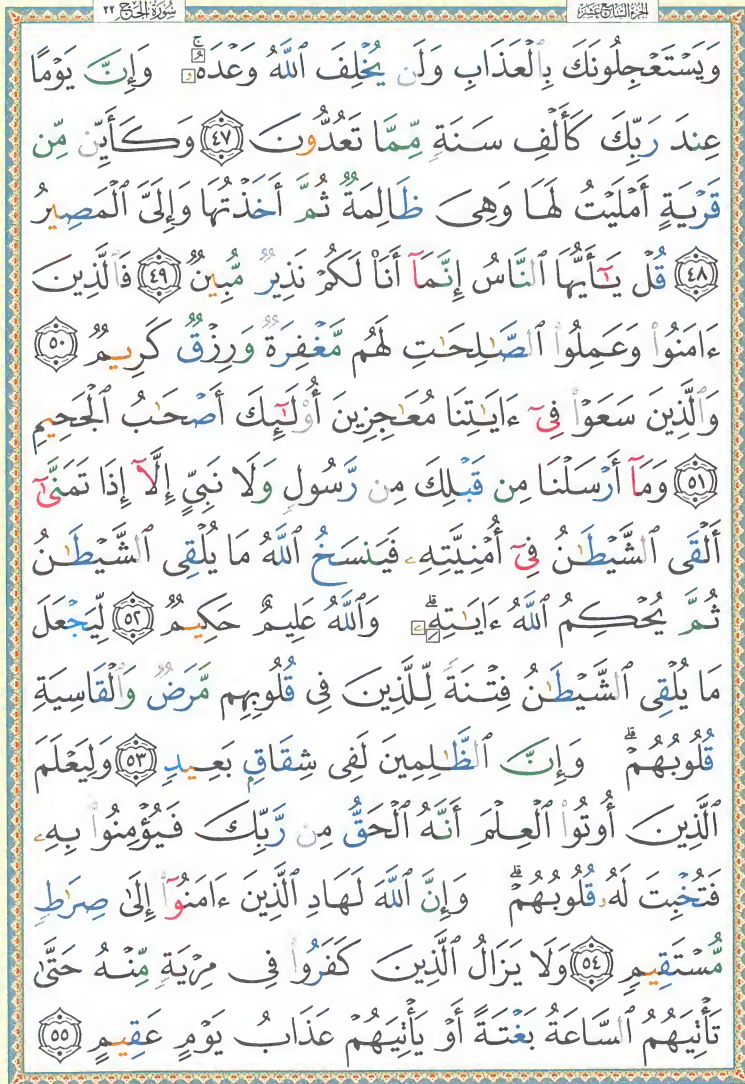 سُورَةُ الْحَجِّ ٢٢ الجزء السابع عشر
وَيَسْتَعْجِلُونَكَ بِٱلْعَذَابِ وَلَن يُخْلِفَ ٱللَّهُ وَعْدَهُۥۚ وَإِنَّ يَوْمًا
عِندَ رَبِّكَ كَأَلْفِ سَنَةٍ مِّمَّا تَعُدُّونَ ٤٧ وَكَأَيِّن مِّن
قَرْيَةٍ أَمْلَيْتُ لَهَا وَهِىَ ظَالِمَةٌ ثُمَّ أَخَذْتُهَا وَإِلَىَّ ٱلْمَصِيرُ
٤٨ قُلْ يَٰٓأَيُّهَا ٱلنَّاسُ إِنَّمَآ أَنَا۠ لَكُمْ نَذِيرٌ مُّبِينٌ ٤٩ فَٱلَّذِينَ
ءَامَنُوا۟ وَعَمِلُوا۟ ٱلصَّٰلِحَٰتِ لَهُم مَّغْفِرَةٌ وَرِزْقٌ كَرِيمٌ ٥٠
وَٱلَّذِينَ سَعَوْا۟ فِىٓ ءَايَٰتِنَا مُعَٰجِزِينَ أُو۟لَٰٓئِكَ أَصْحَٰبُ ٱلْجَحِيمِ
٥١ وَمَآ أَرْسَلْنَا مِن قَبْلِكَ مِن رَّسُولٍ وَلَا نَبِىٍّ إِلَّآ إِذَا تَمَنَّىٰٓ
أَلْقَى ٱلشَّيْطَٰنُ فِىٓ أُمْنِيَّتِهِۦ فَيَنسَخُ ٱللَّهُ مَا يُلْقِى ٱلشَّيْطَٰنُ
ثُمَّ يُحْكِمُ ٱللَّهُ ءَايَٰتِهِۦۗ وَٱللَّهُ عَلِيمٌ حَكِيمٌ ٥٢ لِّيَجْعَلَ
مَا يُلْقِى ٱلشَّيْطَٰنُ فِتْنَةً لِّلَّذِينَ فِى قُلُوبِهِم مَّرَضٌ وَٱلْقَاسِيَةِ
قُلُوبُهُمْۗ وَإِنَّ ٱلظَّٰلِمِينَ لَفِى شِقَاقٍۭ بَعِيدٍ ٥٣ وَلِيَعْلَمَ
ٱلَّذِينَ أُوتُوا۟ ٱلْعِلْمَ أَنَّهُ ٱلْحَقُّ مِن رَّبِّكَ فَيُؤْمِنُوا۟ بِهِۦ
فَتُخْبِتَ لَهُۥ قُلُوبُهُمْۗ وَإِنَّ ٱللَّهَ لَهَادِ ٱلَّذِينَ ءَامَنُوٓا۟ إِلَىٰ صِرَٰطٍ
مُّسْتَقِيمٍ ٥٤ وَلَا يَزَالُ ٱلَّذِينَ كَفَرُوا۟ فِى مِرْيَةٍ مِّنْهُ حَتَّىٰ
تَأْتِيَهُمُ ٱلسَّاعَةُ بَغْتَةً أَوْ يَأْتِيَهُمْ عَذَابُ يَوْمٍ عَقِيمٍ ٥٥